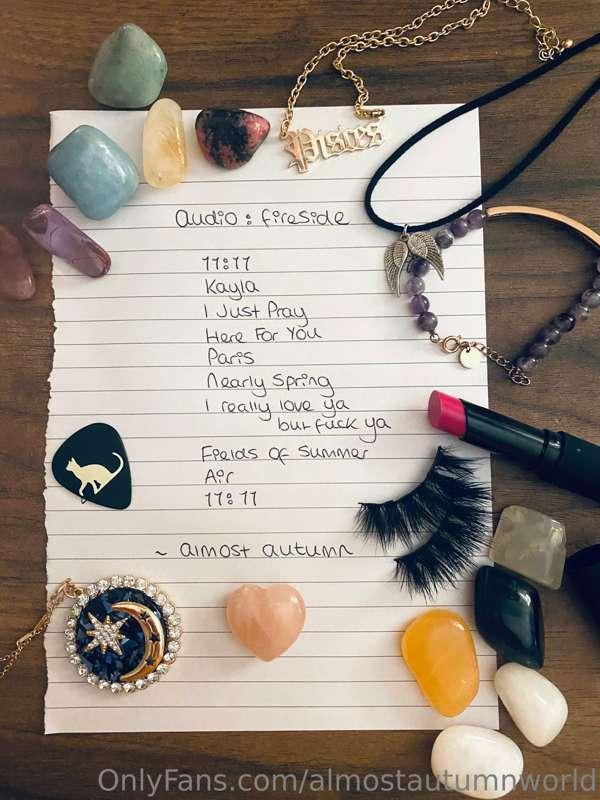 Pisces
audio: fireside
11:11
Kayla
I Just Pray
Here For You
Paris
Nearly Spring
I really love ya
but fuck ya
Fields Of Summer
Air
11:11
~ almost autumn
OnlyFans.com/almostautumnworld